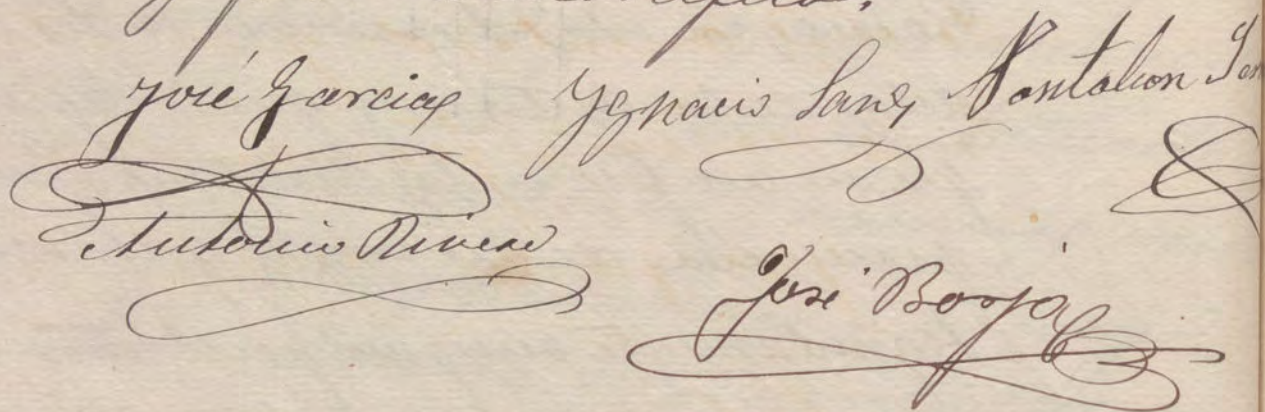 José Garcia Ygnacio Sanz Pantaleon
Antonio Rivera
José Borja